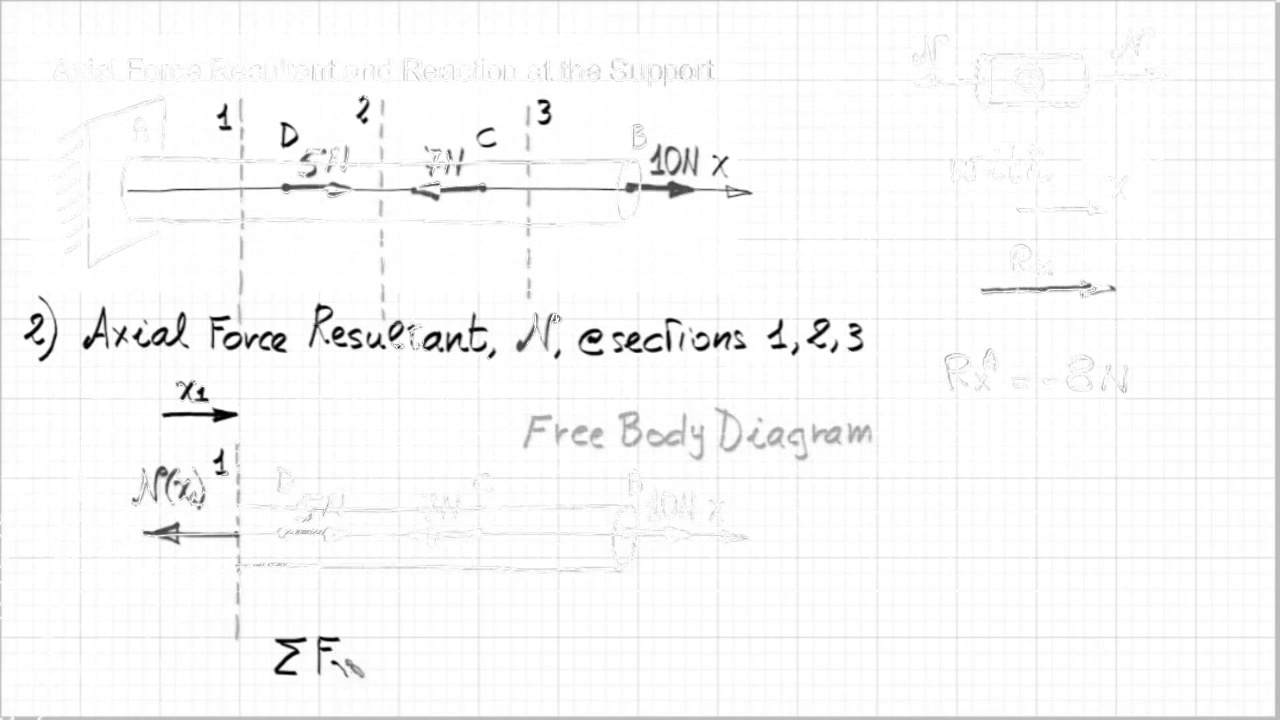 Axial Force Resultant and Reaction at the Support
N N
A 1 D 2 C 3 B
5N 7N 10N x
with
x
Rx
2) Axial Force Resultant, N, @ sections 1, 2, 3
x1
RxA = -8N
Free Body Diagram
N(x) 1 D C B
5N 7N 10N x
ΣFx